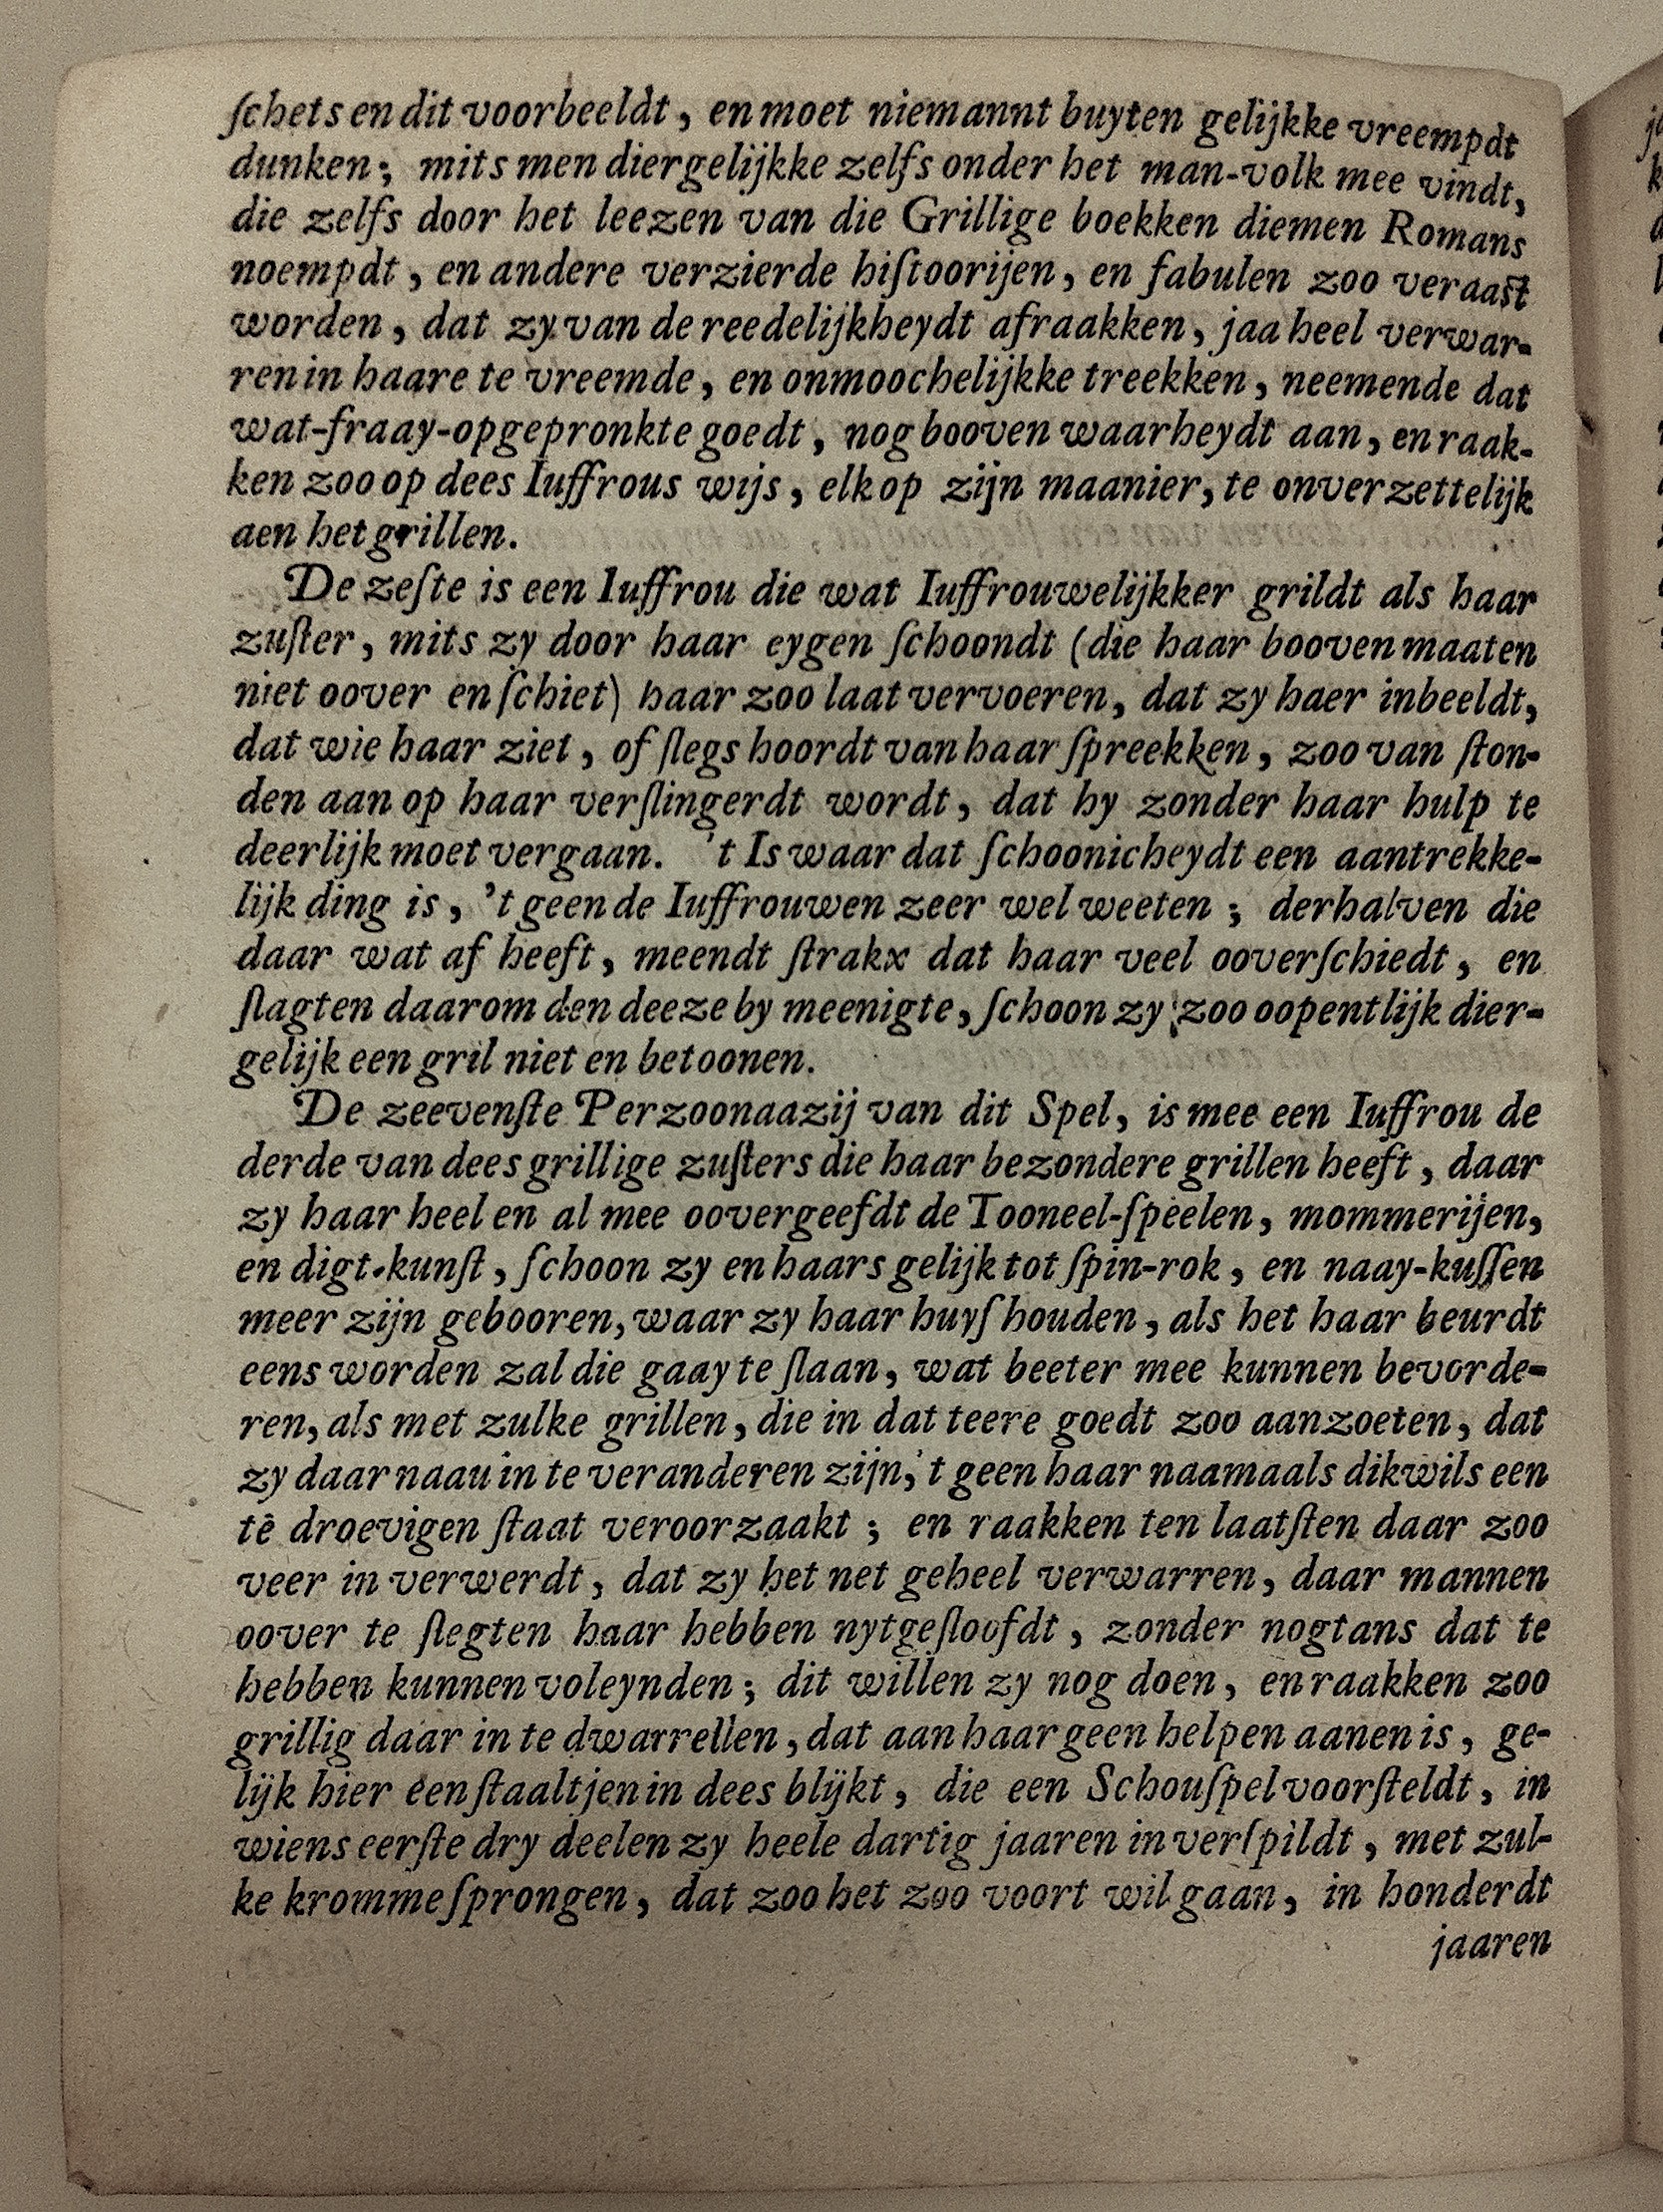 ſchets en dit voorbeeldt, en moet niemannt buyten gelijkke vreempdt
dunken; mits men diergelijkke zelfs onder het man-volk mee vindt,
die zelfs door het leezen van die Grillige boekken diemen Romans
noempdt, en andere verzierde hiſtoorijen, en fabulen zoo veraaſt
worden, dat zy van de reedelijkheydt afraakken, jaa heel verwar-
ren in haare te vreemde, en onmoochelijkke treekken, neemende dat
wat-fraay-opgepronkte goedt, nog booven waarheydt aan, en raak-
ken zoo op dees Iuffrous wijs, elk op zijn maanier, te onverzettelijk
aen het grillen.
De zeſte is een Iuffrou die wat Iuffrouwelijkker grildt als haar
zuſter, mits zy door haar eygen ſchoondt (die haar booven maaten
niet oover en ſchiet) haar zoo laat vervoeren, dat zy haer inbeeldt,
dat wie haar ziet, of ſlegs hoordt van haar ſpreekken, zoo van ſton-
den aan op haar verſlingerdt wordt, dat hy zonder haar hulp te
deerlijk moet vergaan. 't Is waar dat ſchoonicheydt een aantrekke-
lijk ding is, 't geen de Iuffrouwen zeer wel weeten; derhalven die
daar wat af heeft, meendt ſtrakx dat haar veel ooverſchiedt, en
ſlagten daarom den deeze by meenigte, ſchoon zy zoo oopentlijk dier-
gelijk een gril niet en betoonen.
De zeevenſte Perzoonaazij van dit Spel, is mee een Iuffrou de
derde van dees grillige zuſters die haar bezondere grillen heeft, daar
zy haar heel en al mee oovergeefdt de Tooneel-ſpeelen, mommerijen,
en digt-kunſt, ſchoon zy en haars gelijk tot ſpin-rok, en naay-kuſſen
meer zijn gebooren, waar zy haar huyſ houden, als het haar beurdt
eens worden zal die gaay te ſlaan, wat beeter mee kunnen bevorde-
ren, als met zulke grillen, die in dat teere goedt zoo aanzoeten, dat
zy daar naau in te veranderen zijn, 't geen haar naamaals dikwils een
tē droevigen ſtaat veroorzaakt; en raakken ten laatſten daar zoo
veer in verwerdt, dat zy het net geheel verwarren, daar mannen
oover te ſlegten haar hebben nytgeſloofdt, zonder nogtans dat te
hebben kunnen voleynden; dit willen zy nog doen, en raakken zoo
grillig daar in te dwarrellen, dat aan haar geen helpen aanen is, ge-
lijk hier een ſtaaltjen in dees blijkt, die een Schouſpel voorſteldt, in
wiens eerſte dry deelen zy heele dartig jaaren in verſpildt, met zul-
ke kromme ſprongen, dat zoo het zoo voort wil gaan, in honderdt
jaaren